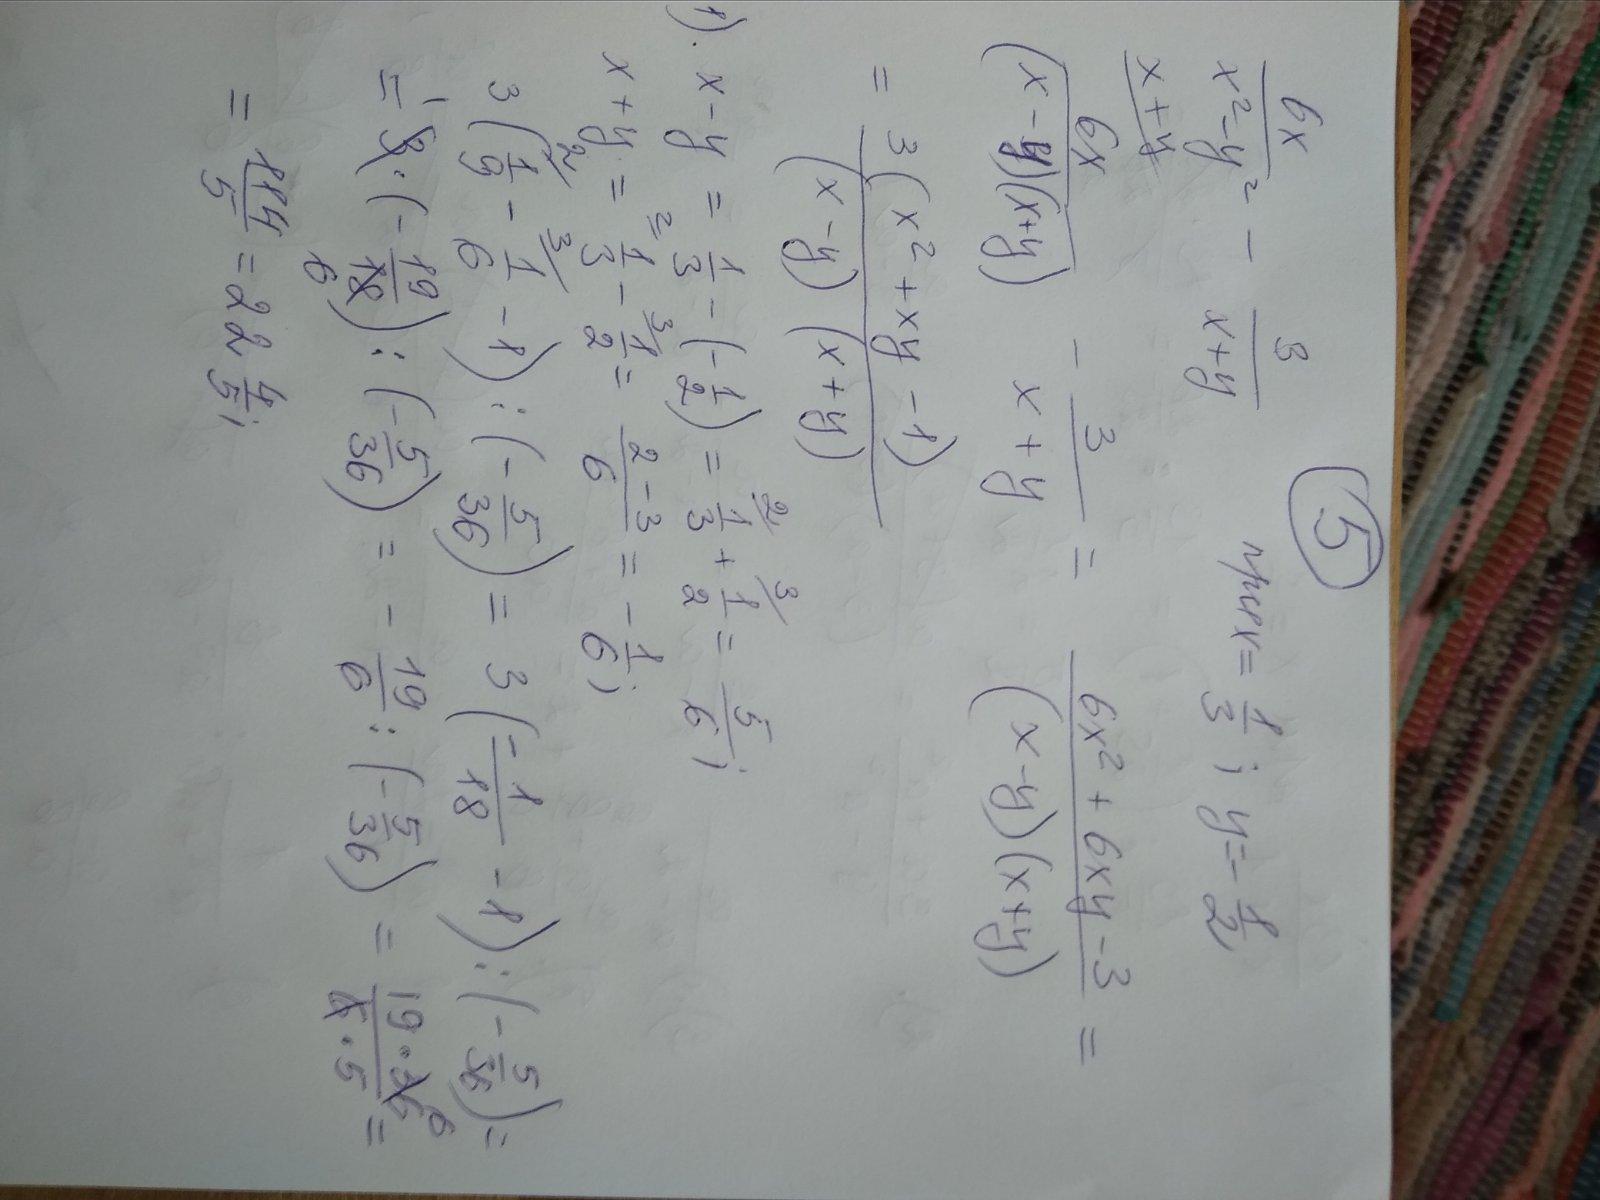 (5)
6x/(x²-y²) - 3/(x+y) при x = 1/3; y = -1/2
x+y
6x/((x-y)(x+y)) - 3/(x+y) = (6x²+6xy-3)/((x-y)(x+y)) =
= 3(x²+xy-1)/((x-y)(x+y))
1). x-y = 1/3 - (-1/2) = 2/ 1/3 + 3/ 1/2 = 5/6;
x+y = 2/ 1/3 - 3/ 1/2 = (2-3)/6 = -1/6;
3(2/ 1/9 - 3/ 1/6 - 1) : (-5/36) = 3(-1/18 - 1) : (-5/36) =
= 3 · (-19/18) : (-5/36) = -19/6 : (-5/36) = (19·36)/(6·5) =
= 114/5 = 22 4/5;